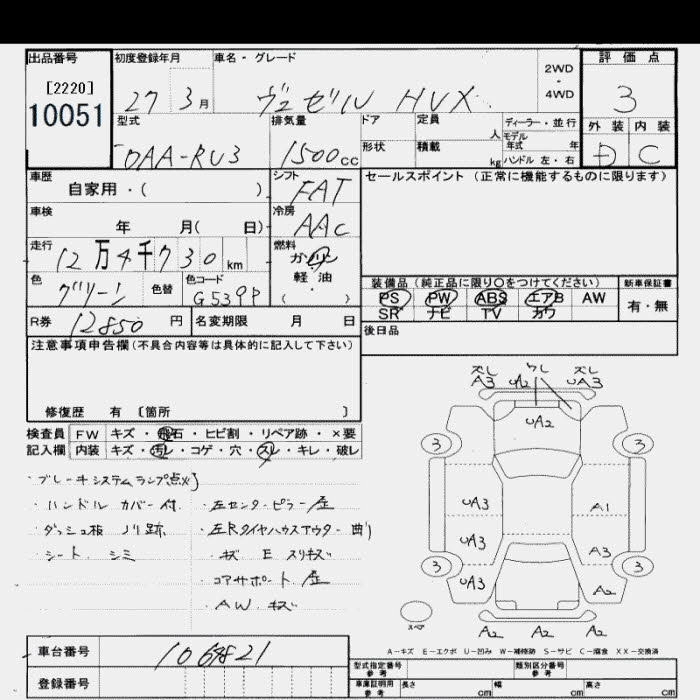 出品番号 初度登録年月 車名・グレード 2WD・4WD 評価点
[2220]
10051
27 3月 ヴェゼル HVX 3
型式 排気量 ドア 定員 人 ディーラー・並行 外装 内装
形状 積載 kg モデル年式 年 ハンドル 左・右
DAA-RU3 1500cc D C
車歴 シフト セールスポイント (正常に機能するものに限ります)
自家用・( ) FAT
車検 冷房
年 月( 日) AAC
走行 燃料
12万4千730km ガソリン
軽・油
( )
色 色替 色コード 装備品(純正品に限り○をつけてください) 新車保証書
グリーン G539P PS PW ABS エアB AW 有・無
SR ナビ TV カワ
R券 12850円 名変期限 月 日 後日品
注意事項申告欄(不具合内容等は具体的に記入して下さい)
修復歴 有 〔箇所 〕
検査員 FW キズ・飛石・ヒビ割・リペア跡・×要
記入欄 内装 キズ・汚れ・コゲ・穴・スレ・キレ・破レ
・ブレーキシステムランプ点灯
・ハンドル カバー付
・ダッシュ板 ノリ跡
・シート シミ
・左センターピラー
・左Rタイヤハウスアウター 曲り
キズ E スリキズ
・コアサポート
・AW キズ
ズレ A3 UA2 ズレ UA3
UA2
3 3
UA3 A1
UA3 A3
3 3
UA3 A2
スペア A2 A2 A2
A-キズ E-エクボ U-凹み W-補修跡 S-サビ C-腐食 XX-交換済
車台番号 1064821
登録番号
型式指定番号 参考 類別区分番号 参考
車庫証明用 参考 長さ cm 幅 cm 高さ cm